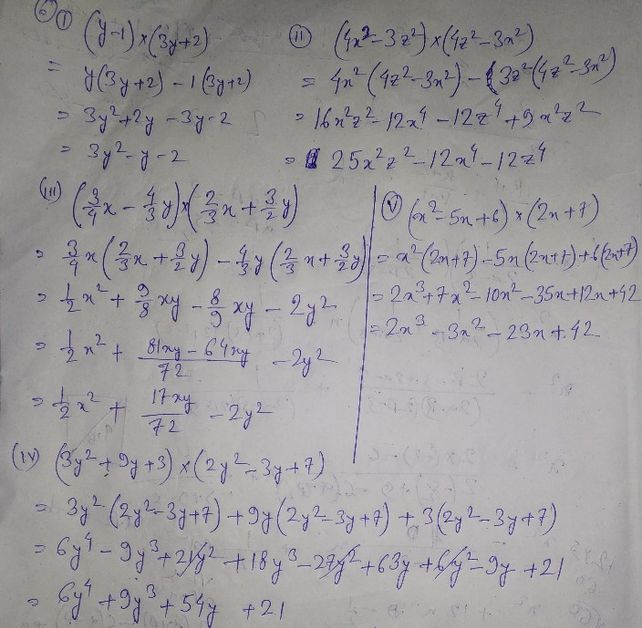 6) (i) (y-1)×(3y+2)
= y(3y+2) - 1(3y+2)
= 3y²+2y - 3y-2
= 3y²-y-2
(ii) (4x²-3z²)×(4z²-3x²)
= 4x²(4z²-3x²) - 3z²(4z²-3x²)
= 16x²z²-12x⁴-12z⁴+9x²z²
= 25x²z²-12x⁴-12z⁴
(iii) (3/4x - 4/3y)×(2/3x + 3/2y)
= 3/4x(2/3x + 3/2y) - 4/3y(2/3x + 3/2y)
= 1/2x² + 9/8xy - 8/9xy - 2y²
= 1/2x² + (81xy-64xy)/72 - 2y²
= 1/2x² + 17xy/72 - 2y²
(v) (x²-5x+6)×(2x+7)
= x²(2x+7)-5x(2x+7)+6(2x+7)
= 2x³+7x²-10x²-35x+12x+42
= 2x³-3x²-23x+42
(iv) (3y²+9y+3)×(2y²-3y+7)
= 3y²(2y²-3y+7)+9y(2y²-3y+7)+3(2y²-3y+7)
= 6y⁴-9y³+21y²+18y³-27y²+63y+6y²-9y+21
= 6y⁴+9y³+54y+21